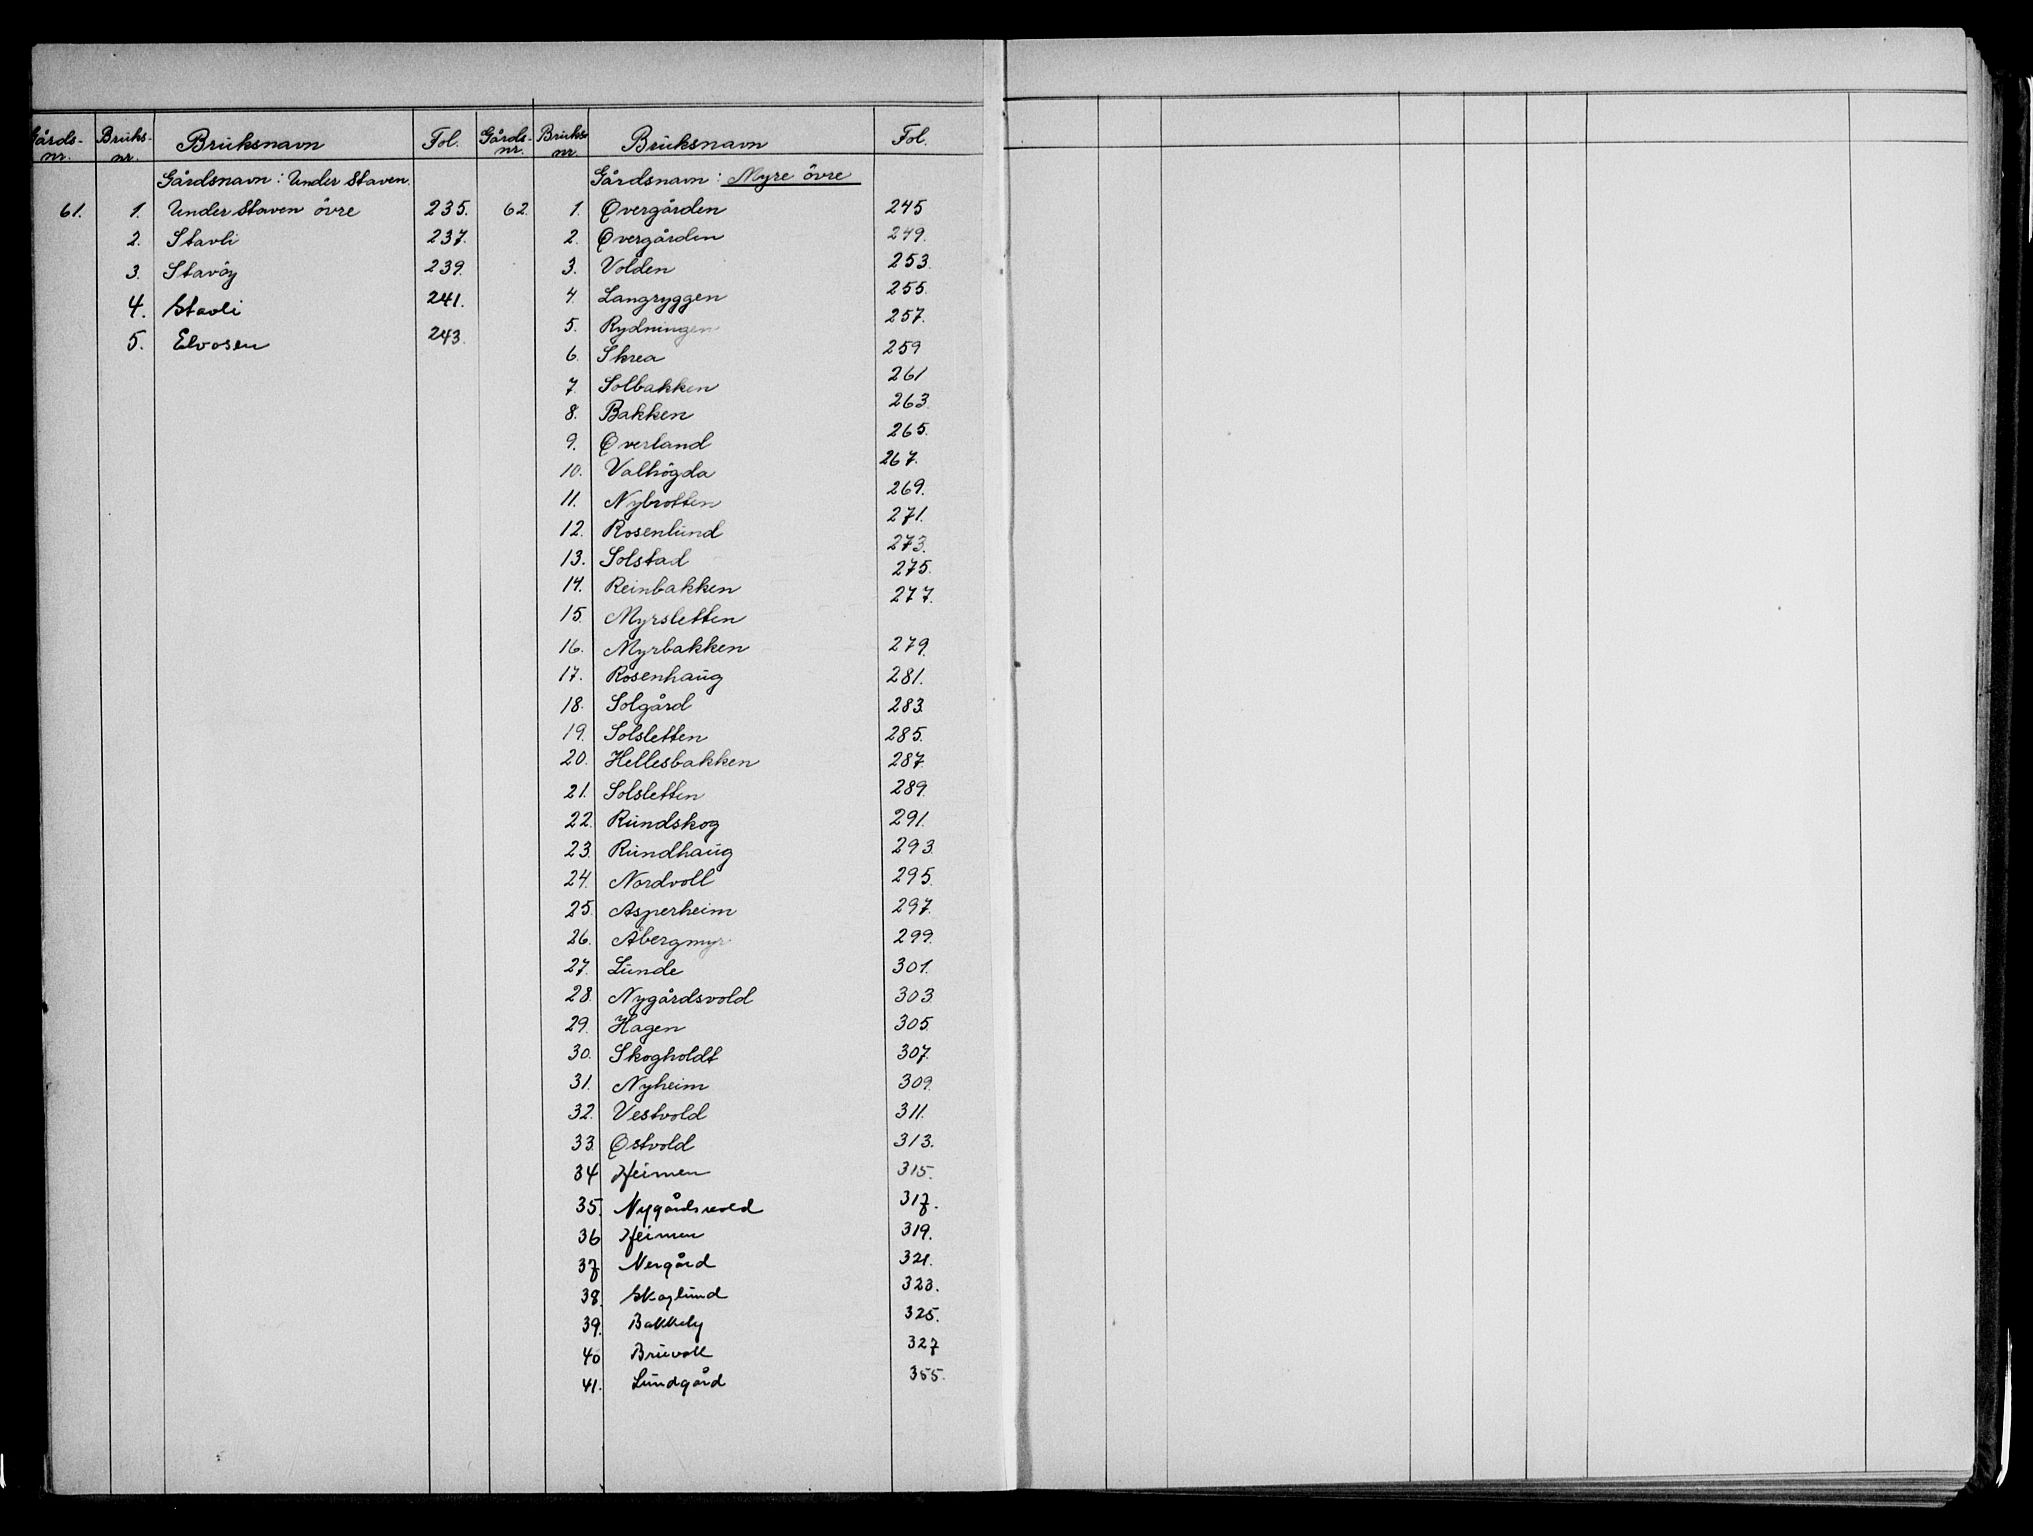 Gårdsnr. Bruksnr. Bruksnavn Fol.
Gårdsnavn: Under Staven.
61. 1. Under Staven övre 235.
2. Stavli 237.
3. Stavöy 239.
4. Stavli 241.
5. Elvosen 243.
Gårdsnr. Bruksnr. Bruksnavn Fol.
Gårdsnavn: Myre övre
62. 1. Øvergården 245
2. Øvergården 249.
3. Volden 253.
4. Langryggen 255.
5. Rydningen 257.
6. Skrea 259
7. Solbakken 261
8. Bakken 263.
9. Øverland 265.
10. Valhögda 267.
11. Nybrotten 269.
12. Rosenlund 271.
13. Solstad 273.
14. Reinbakken 275.
15. Myrsletten 277.
16. Myrbakken 279.
17. Rosenhaug 281.
18. Solgård 283.
19. Solsletten 285.
20. Hellesbakken 287.
21. Solsletten 289.
22. Rundskog 291.
23. Rundhaug 293.
24. Nordvoll 295.
25. Asperheim 297.
26. Åbergmyr 299.
27. Lunde 301.
28. Nygårdsvold 303.
29. Hagen 305.
30. Skogholdt 307.
31. Nyheim 309.
32. Vestvold 311.
33. Østvold 313.
34 Heimen 315.
35. Nygårdsvold 317.
36 Heimen 319.
37 Nergård 321.
38. Skoglund 323.
39. Bakkely 325.
40 Bruvoll 327
41. Lundgård 355.